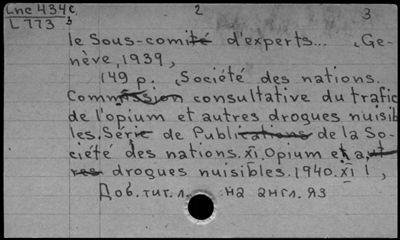 Lnc 434c, 2 3
L773 b
le Sous-comité d'experts... , Ge-
nève, 1939,
149 p. , Société des nations.
Commission consultative du trafic
de l'opium et autres drogues nuisib
les. Série de Publications de la So-
ciété des nations. XI. Opium et aut
res drogues nuisibles. 1940. XI 1,
Доб. тит. л. на англ. яз